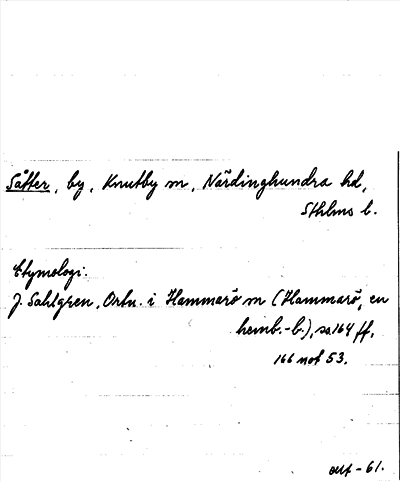 Såtter, by, Knutby sn, Närdinghundra hd,
Sthlms l.
Etymologi:
J. Sahlgren, Ortn. i Hammarö sn (Hammarö, en
hemb.-b.), sa 164 ff,
166 not 53.
-61.